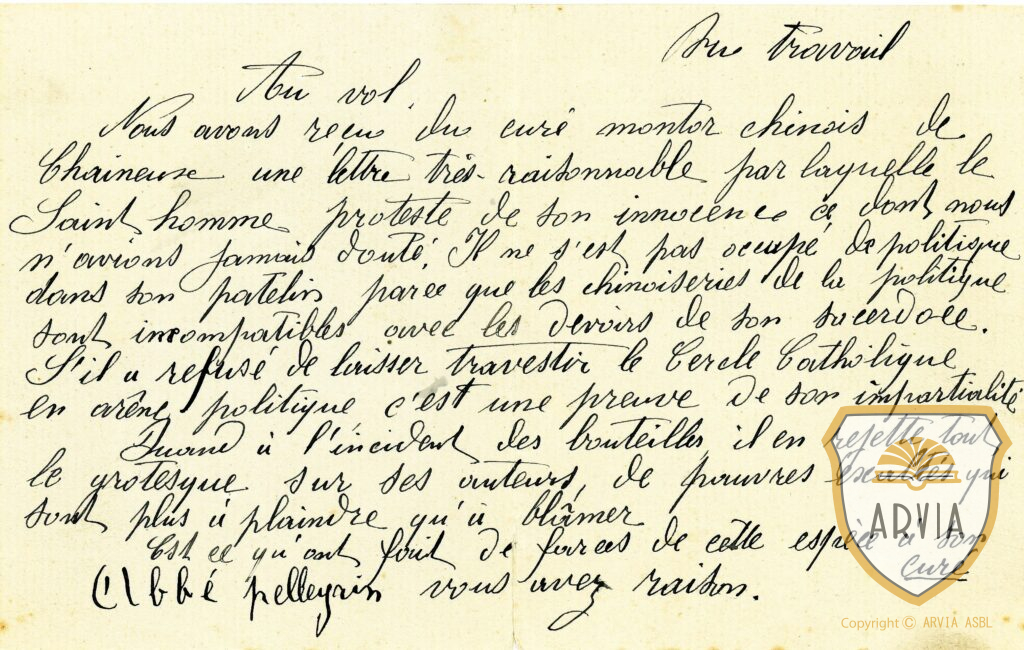 Du travail
Au vol.
Nous avons réçu du curé montor chinois de
Chaineuse une lettre très-raisonnable par laquelle le
Saint homme proteste de son innocence ce dont nous
n'avions jamais douté. Il ne s'est pas occupé de politique
dans son patelin parce que les chinoiseries de la politique
sont incompatibles avec les devoirs de son sacerdoce.
S'il a refusé de laisser travestir le Cercle Catholique
en arêne politique c'est une preuve de son impartialité
Quand à l'incident des bouteilles il en rejette tout
le grotesque sur ses auteurs, de pauvres éxaltés qui
sont plus à plaindre qu'à blâmer
Est ce qu'ont fait de farces de cette espèce à son
curé
L'Abbé pellegrin vous avez raison.
ARVIA
Copyright © ARVIA ASBL